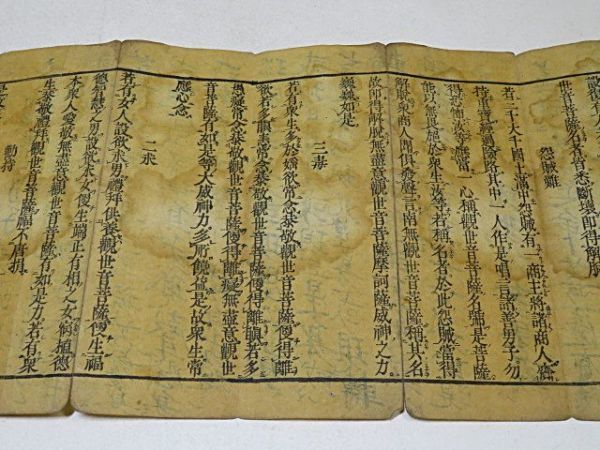 皆悉斷壞即得解脫
怨賊難
若三千大千國土滿中怨賊有一商主將諸商人齎
持重寶經過險路其中一人作是唱言諸善男子勿
得恐怖汝等應當一心稱觀世音菩薩名號是菩薩
能以無畏施於衆生汝等若稱名者於此怨賊當得
解脫衆商人聞俱發聲言南無觀世音菩薩稱其名
故即得解脫無盡意觀世音菩薩摩訶薩威神之力
巍巍如是
三毒
若有衆生多於婬欲常念恭敬觀世音菩薩便得離
欲若多瞋恚常念恭敬觀世音菩薩便得離瞋若多
愚癡常念恭敬觀世音菩薩便得離癡無盡意觀世
音菩薩有如是等大威神力多所饒益是故衆生常
應心念
二求
若有女人設欲求男禮拜供養觀世音菩薩便生福
德智慧之男設欲求女便生端正有相之女宿植德
本衆人愛敬無盡意觀世音菩薩有如是力若有衆
生恭敬禮拜觀世音菩薩福不唐捐
勸持